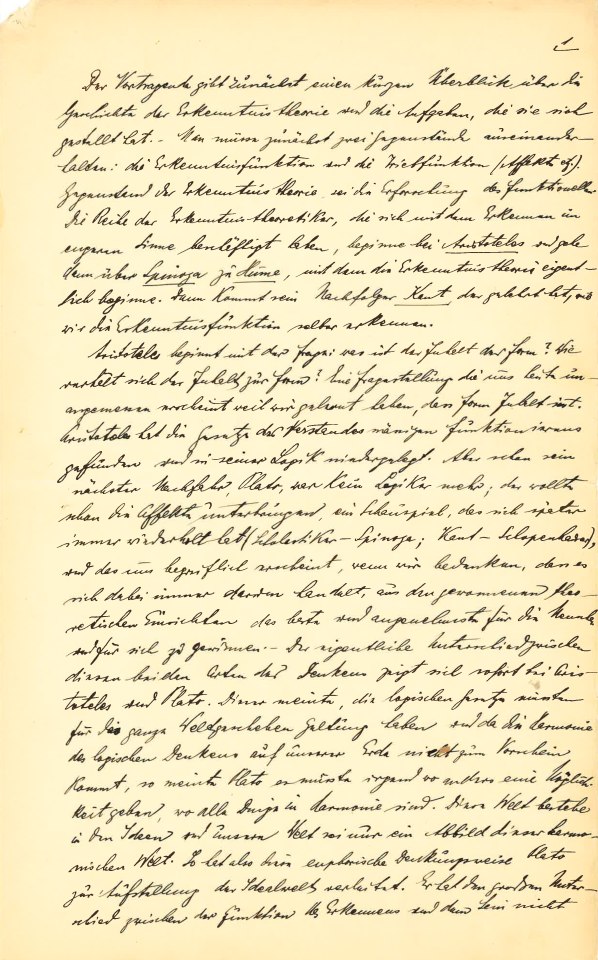 1
Der Vortragende gibt zunächst einen kurzen Überblick über die
Geschichte der Erkenntnistheorie und die Aufgaben, die sie sich
gestellt hat. – Man müsse zunächst zwei Gegenstände auseinander-
halten: die Erkenntnisfunktion und die Triebfunktion (Affekt etz).
Gegenstand der Erkenntnistheorie sei die Erforschung des funktionellen
Die Reihe der Erkenntnistheoretiker, die sich mit dem Erkennen im
engeren Sinne beschäftigt haben, beginne bei Aristoteles und gehe
dann über Spinoza zu Hume, mit dem die Erkenntnistheorie eigent-
lich beginne. Dann kommt sein Nachfolger Kant, der gelehrt hat, wie
wir die Erkenntnisfunktion selber erkennen.
Aristoteles beginnt mit der Frage: was ist der Inhalt der Form? Wie
verhält sich der Inhalt zur Form? Eine Fragestellung die uns heute un-
angemessen erscheint weil wir gelernt haben, dass Form Inhalt ist.
Aristoteles hat die Gesetze des Verstandesmässigen Funktionierens
gefunden und in seiner Logik niedergelegt. Aber schon sein
nächster Nachfahr, Plato, war kein Logiker mehr; der wollte
schon die Affekte unterbringen, ein Schauspiel, das sich später
immer wiederholt hat (Scholastiker – Spinoza; Kant – Schopenhauer),
und das uns begreiflich erscheint, wenn wir bedenken, dass es
sich dabei immer darum handelt, aus den gewonnenen theo-
retischen Einsichten das beste und angenehmste für die Menschen
und für sich zu gewinnen. – Der eigentliche Unterschied zwischen
diesen beiden Arten des Denkens zeigt sich sofort bei Aris-
toteles und Plato. Dieser meinte, die logischen Gesetze müssten
für das ganze Weltgeschehen Geltung haben und da die Harmonie
des logischen Denkens auf unserer Erde nicht zum Vorschein
kommt, so meinte Plato es müsste irgend wo anders eine Möglich-
keit geben, wo alle Dinge in Harmonie sind. Diese Welt bestehe
in den Ideen und unsere Welt sei nur ein Abbild dieser harmo-
nischen Welt. So hat also diese euphorische Denkungsweise Plato
zur Aufstellung der Idealwelt verleitet. Er hat den grossen Unter-
schied zwischen der Funktion des Erkennens und dem Sein nicht